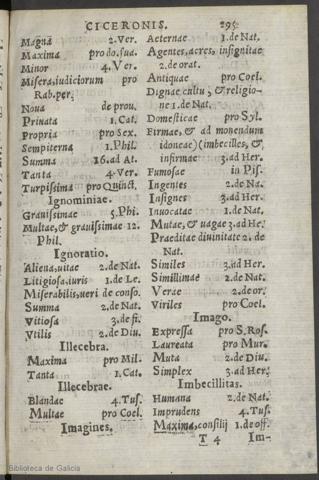 CICERONIS. 295
Magna 2.Ver.
Maxima pro do.sua.
Minor 4.Ver.
Misera,iudiciorum pro
Rab.per.
Noua de prou.
Priuata 1.Cat.
Propria pro Sex.
Sempiterna 1.Phil.
Summa 16.ad At.
Tanta 4.Ver.
Turpissima pro Quinct.
Ignominiae.
Grauissimae 5.Phi.
Multae,& grauissimae 12.
Phil.
Ignoratio.
Aliena,uitae 2.de Nat.
Litigiosa.iuris 1.de Le.
Miserabilis,ueri de conso.
Summa 2.de Nat.
Vitiosa 3.de fi.
Vtilis 2.de Diu.
Illecebra.
Maxima pro Mil.
Tanta 1.Cat.
Illecebrae.
Blandae 4.Tus.
Multae pro Coel.
Imagines.
Aeternae 1.de Nat.
Agentes,acres, insignitae
2.de orat.
Antiquae pro Coel.
Dignae cultu, & religio-
ne 1.de Nat.
Domesticae pro Syl.
Firmae, & ad monendum
idoneae)(imbecilles, &
infirmae 3.ad Her.
Fumosae in Pis.
Ingentes 2.de Na.
Insignes 3.ad Her.
Inuocatae 1.de Nat.
Mutae, & uagae 3.ad He.
Praeditae diuinitate 2. de
Nat.
Similes 3.ad Her.
Simillimae 2.de Nat.
Verae 2.de or.
Viriles pro Coel.
Imago.
Expressa pro S.Ros.
Laureata pro Mur.
Muta 2.de Diu.
Simplex 3.ad Her.
Imbecillitas.
Humana 2.de Nat.
Imprudens 4.Tus.
Maxima,consilij 1.de off.
T 4 Im-
Biblioteca de Galicia